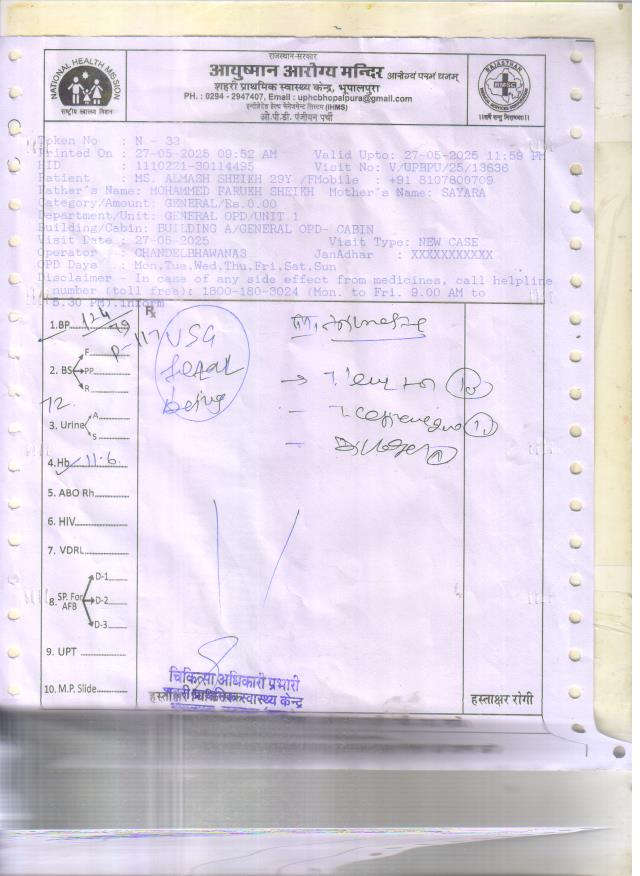 राजस्थान-सरकार
आयुष्मान आरोग्य मन्दिर आरोग्यं परमं धनम्
शहरी प्राथमिक स्वास्थ्य केन्द्र, भूपालपुरा
PH. : 0294 - 2947407, Email : uphcbhopalpura@gmail.com
इन्टीग्रेटेड हेल्थ मेनेजमेन्ट सिस्टम (IHMS)
ओ.पी.डी. पंजीयन पर्ची
NATIONAL HEALTH MISSION
राष्ट्रीय स्वास्थ्य मिशन
RAJASTHAN
RMSC
Token No : N - 33
Printed On : 27-05-2025 09:52 AM Valid Upto: 27-05-2025 11:59 PM
HID : 1110221-30114495 Visit No: V/UPBPU/25/13636
Patient : MS. ALMASH SHEIKH 29Y /F Mobile : +91 8107800709
Father's Name: MOHAMMED FARUKH SHEIKH Mother's Name: SAYARA
Category/Amount: GENERAL/Rs.0.00
Department/Unit: GENERAL OPD/UNIT 1
Building/Cabin: BUILDING A/GENERAL OPD- CABIN
Visit Date : 27-05-2025 Visit Type: NEW CASE
Operator : CHANDELBHAWANAS JanAdhar : XXXXXXXXXXX
OPD Days : Mon,Tue,Wed,Thu,Fri,Sat,Sun
Disclaimer - In case of any side effect from medicines, call helpline
number (toll free): 1800-180-3024 (Mon. to Fri. 9.00 AM to
5.30 PM).inform
1.BP 124
P-117 USG
F
2. BS PP
R
72
3. Urine A
S
4.Hb 11.6
5. ABO Rh
6. HIV
7. VDRL
8. SP. For AFB D-1
D-2
D-3
9. UPT
10. M.P. Slide
चिकित्सा अधिकारी प्रभारी
शहरी प्राथमिक स्वास्थ्य केन्द्र
हस्ताक्षर रोगी